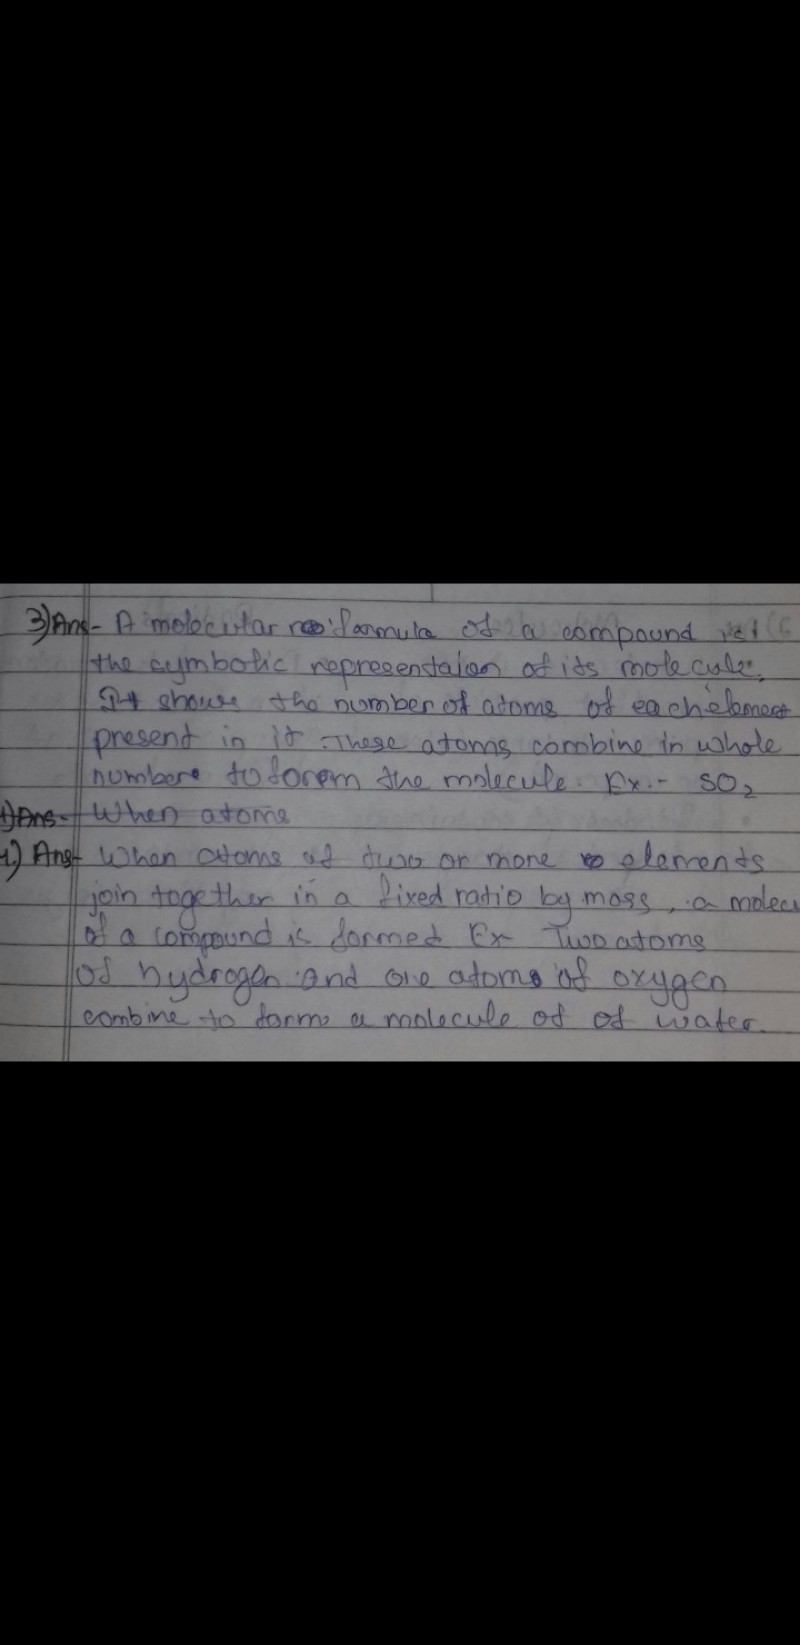 3) Ans- A molecular formula of a compound is
the symbolic representaion of its molecule.
It shows the number of atoms of each element
present in it. These atoms combine in whole
numbers to form the molecule. Ex.- SO₂
Ans- When atoms
Ans- When atoms of two or more elements
join together in a fixed ratio by mass, a molecu
of a compound is formed Ex- Two atoms
of hydrogen and one atoms of oxygen
combine to form a molecule of of water.